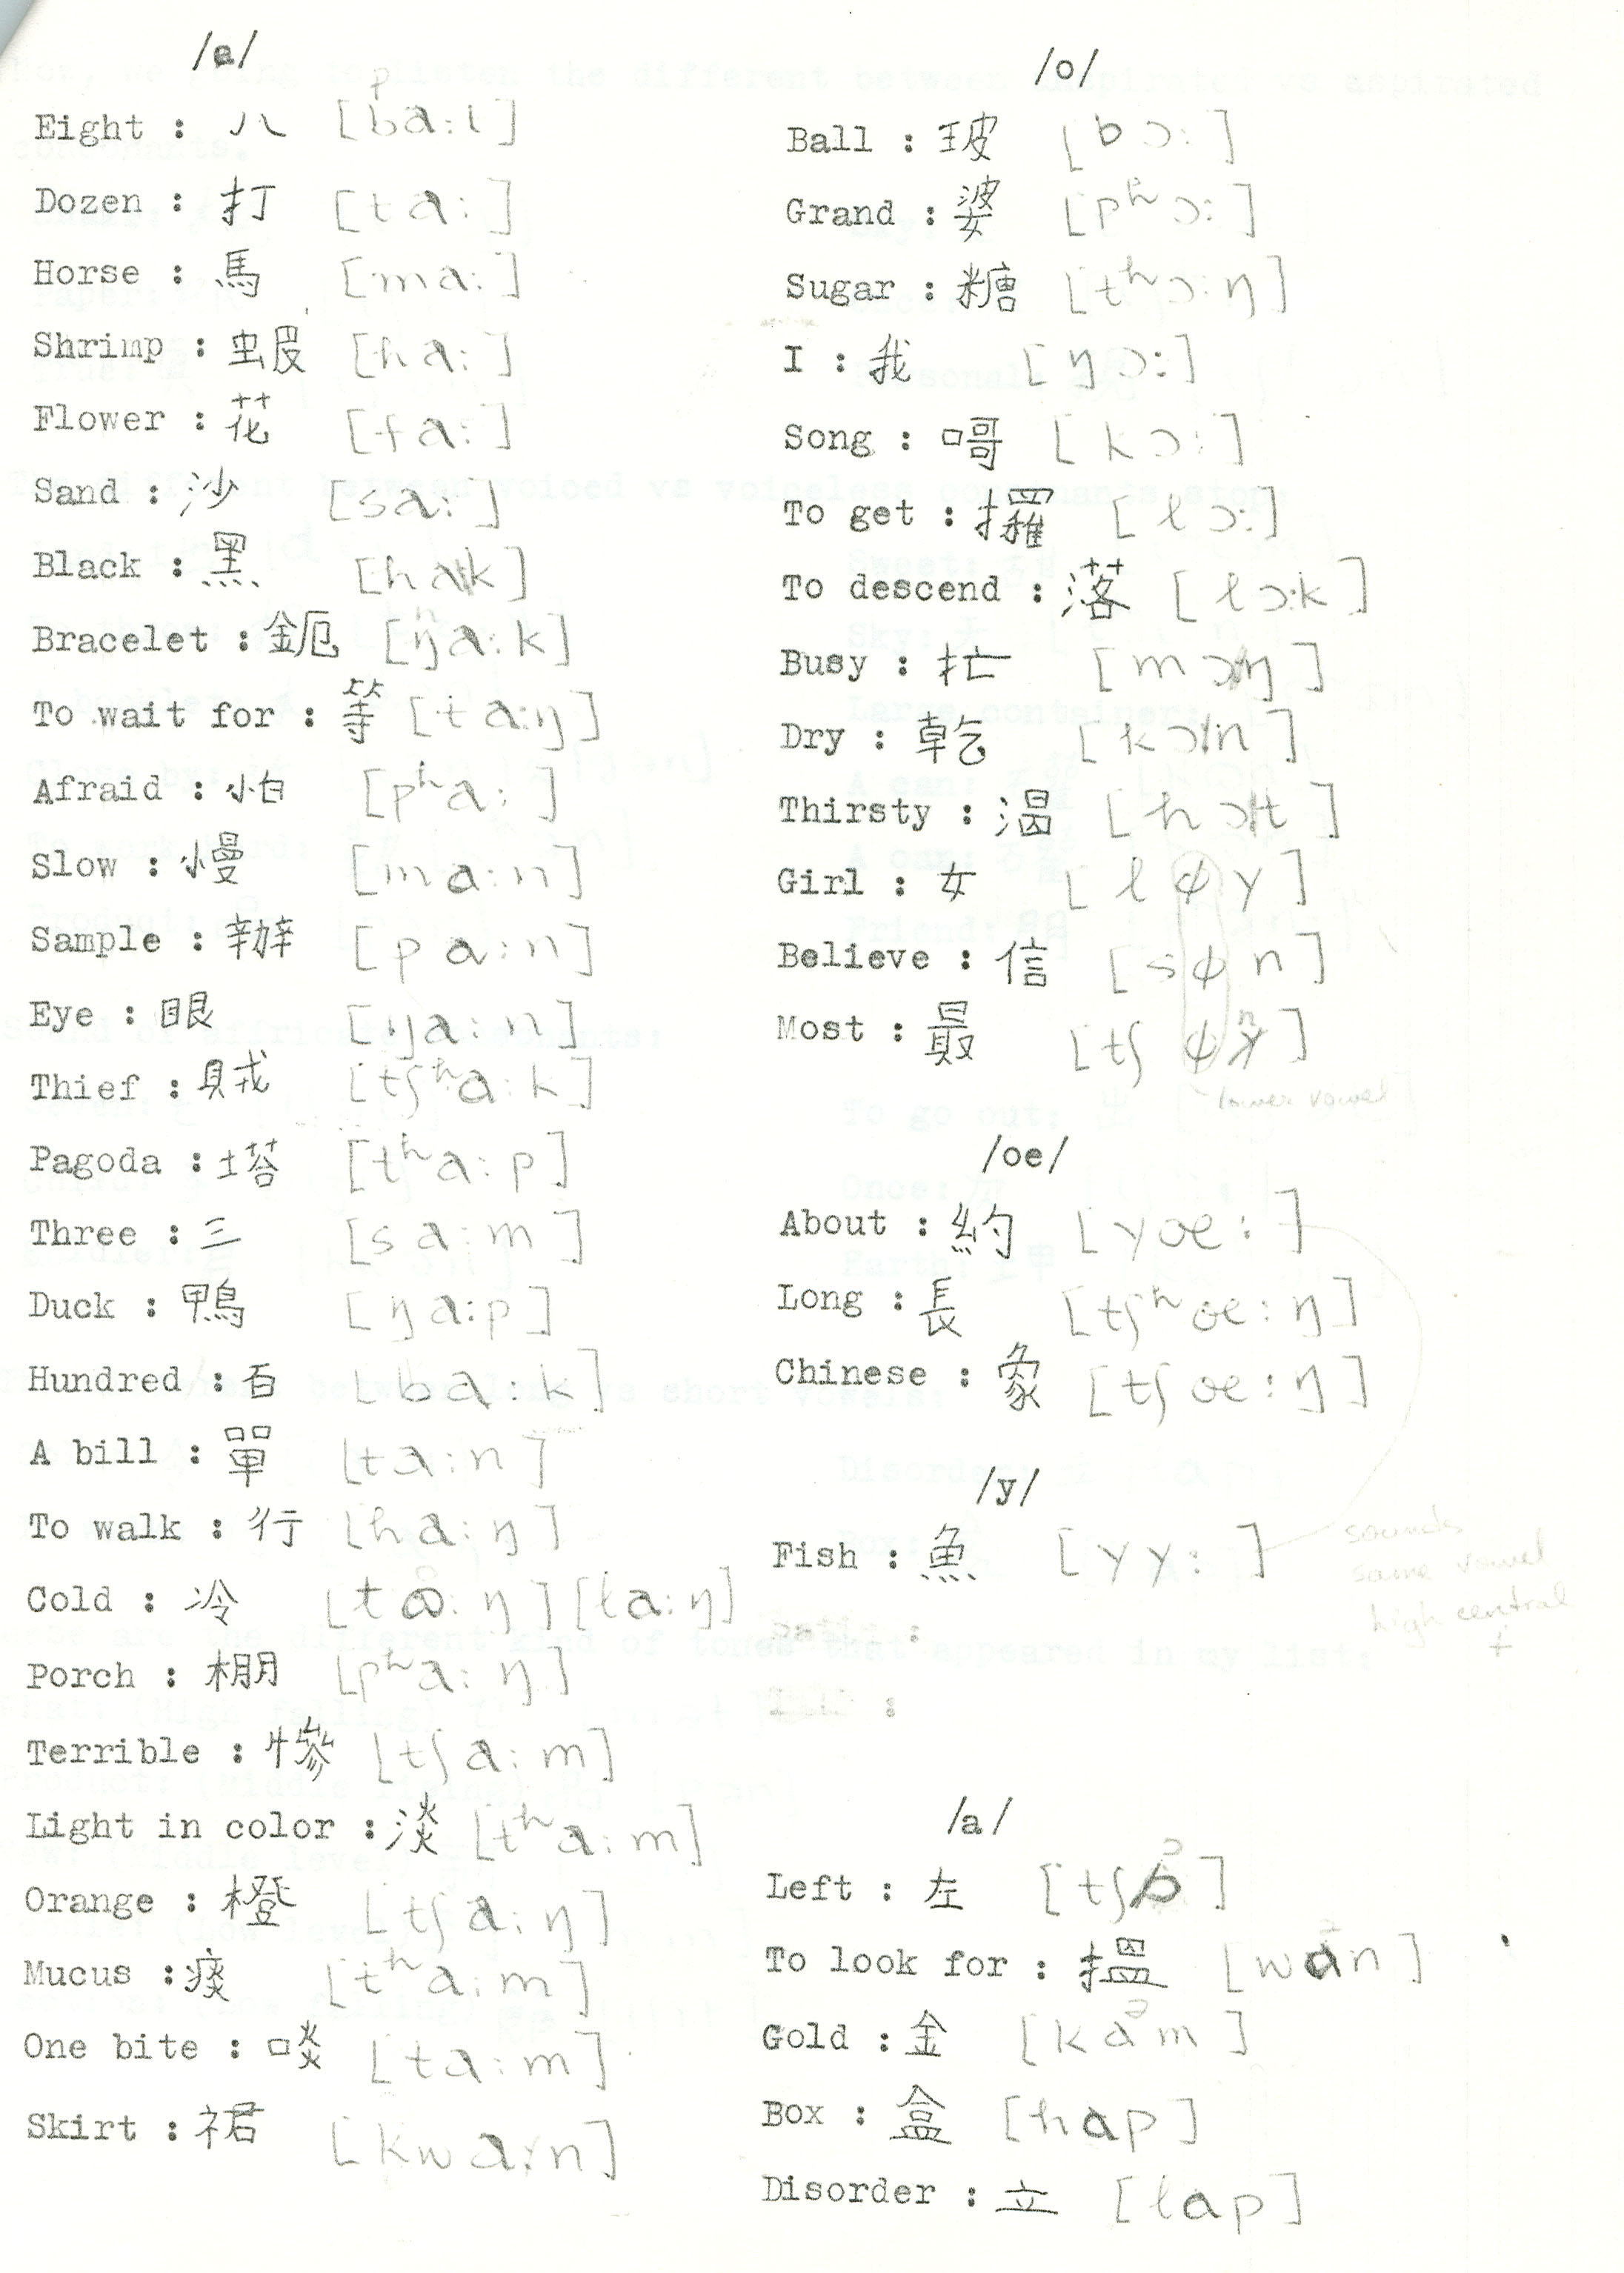 /a/
Eight : 八 [pa:t]
Dozen : 打 [ta:]
Horse : 馬 [ma:]
Shrimp : 蝦 [ha:]
Flower : 花 [fa:]
Sand : 沙 [sa:]
Black : 黑 [hak]
Bracelet : 鈪 [ŋa:k]
To wait for : 等 [ta:ŋ]
Afraid : 怕 [pʰa:]
Slow : 慢 [ma:n]
Sample : 辦 [pa:n]
Eye : 眼 [ŋa:n]
Thief : 賊 [tʃʰa:k]
Pagoda : 塔 [tʰa:p]
Three : 三 [sa:m]
Duck : 鴨 [ŋa:p]
Hundred : 百 [ba:k]
A bill : 單 [ta:n]
To walk : 行 [ha:ŋ]
Cold : 冷 [la:ŋ]
Porch : 棚 [pʰa:ŋ]
Terrible : 慘 [tʃa:m]
Light in color : 淡 [tʰa:m]
Orange : 橙 [tʃa:ŋ]
Mucus : 痰 [tʰa:m]
One bite : 啖 [ta:m]
Skirt : 裙 [kwa:n]
/o/
Ball : 玻 [bɔ:]
Grand : 婆 [pʰɔ:]
Sugar : 糖 [tʰɔ:ŋ]
I : 我 [ŋɔ:]
Song : 哥 [kɔ:]
To get : 攞 [lɔ:]
To descend : 落 [lɔ:k]
Busy : 忙 [mɔŋ]
Dry : 乾 [kɔn]
Thirsty : 渴 [hɔt]
Girl : 女 [lϕy]
Believe : 信 [sϕn]
Most : 最 [tʃϕ]
lower vowel
/oe/
About : 約 [yoe:]
Long : 長 [tʃʰoe:ŋ]
Chinese : 象 [tʃoe:ŋ]
/y/
Fish : 魚 [yy:]
sounds
same vowel
high central
+
/a/
Left : 左 [tʃɔ]
To look for : 搵 [wan]
Gold : 金 [kam]
Box : 盒 [hap]
Disorder : 立 [lap]